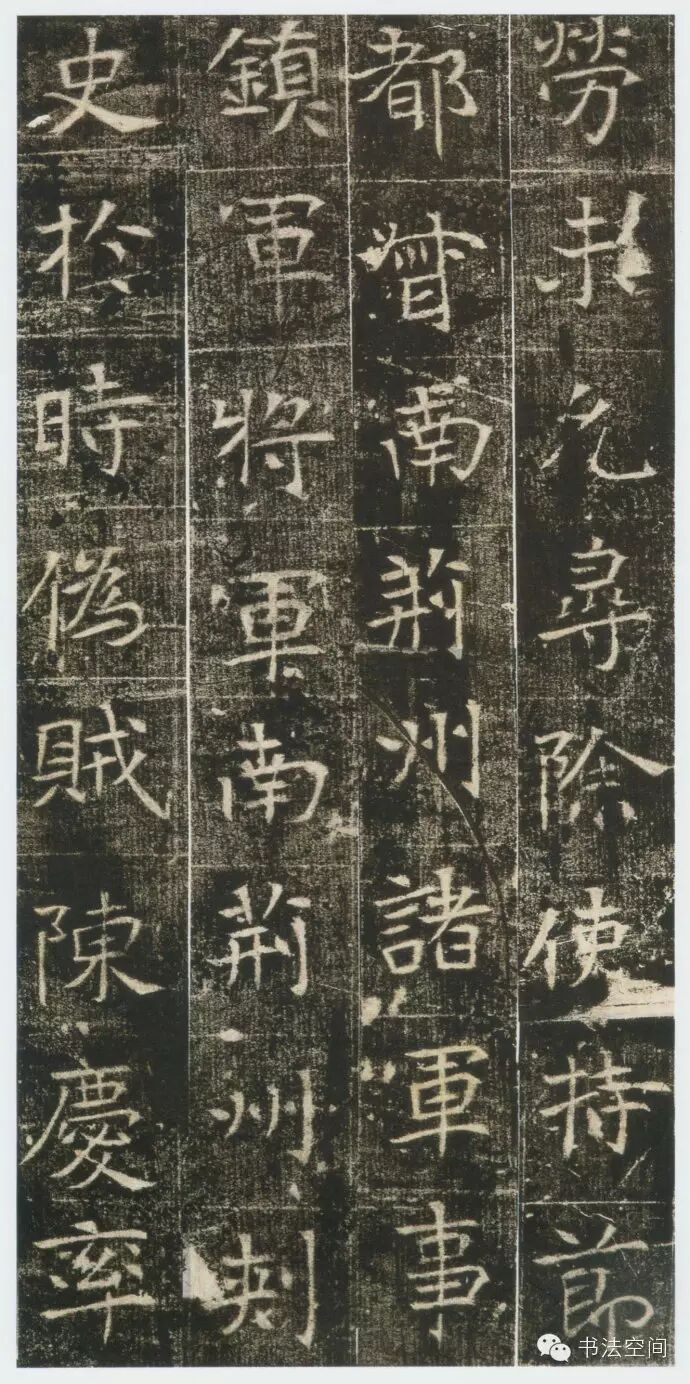 勞允尋除使持節
都督南荊州諸軍事
鎮軍將軍南荊州刾
史於時偽賊陳慶率
书法空间